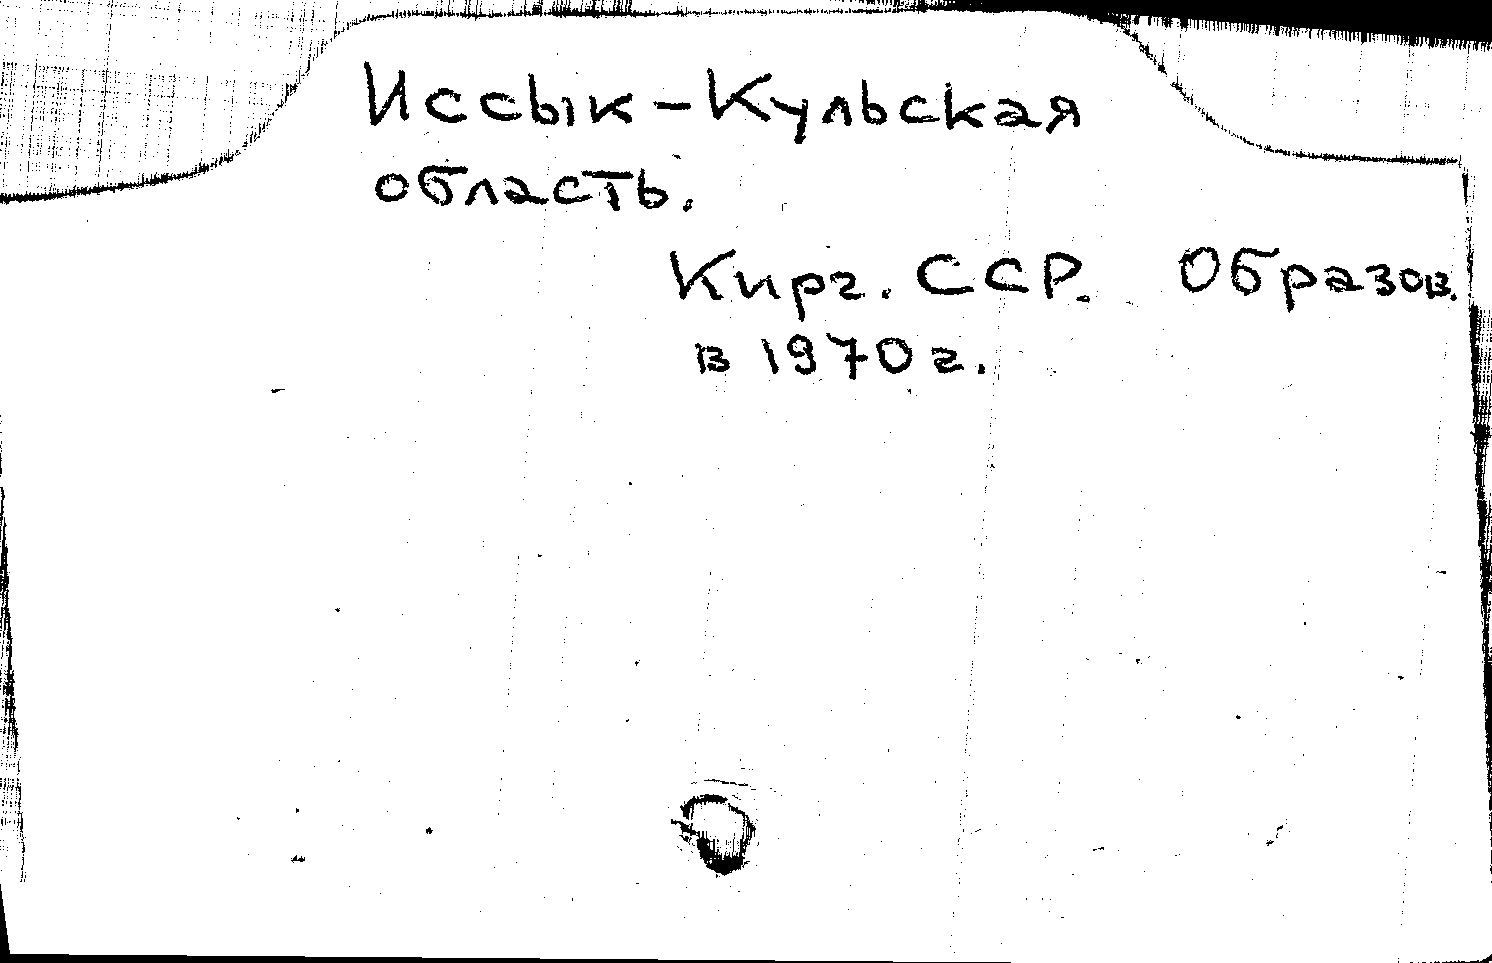 Иссык-Кульская
область.
Кирг. ССР. Образов.
в 1970 г.